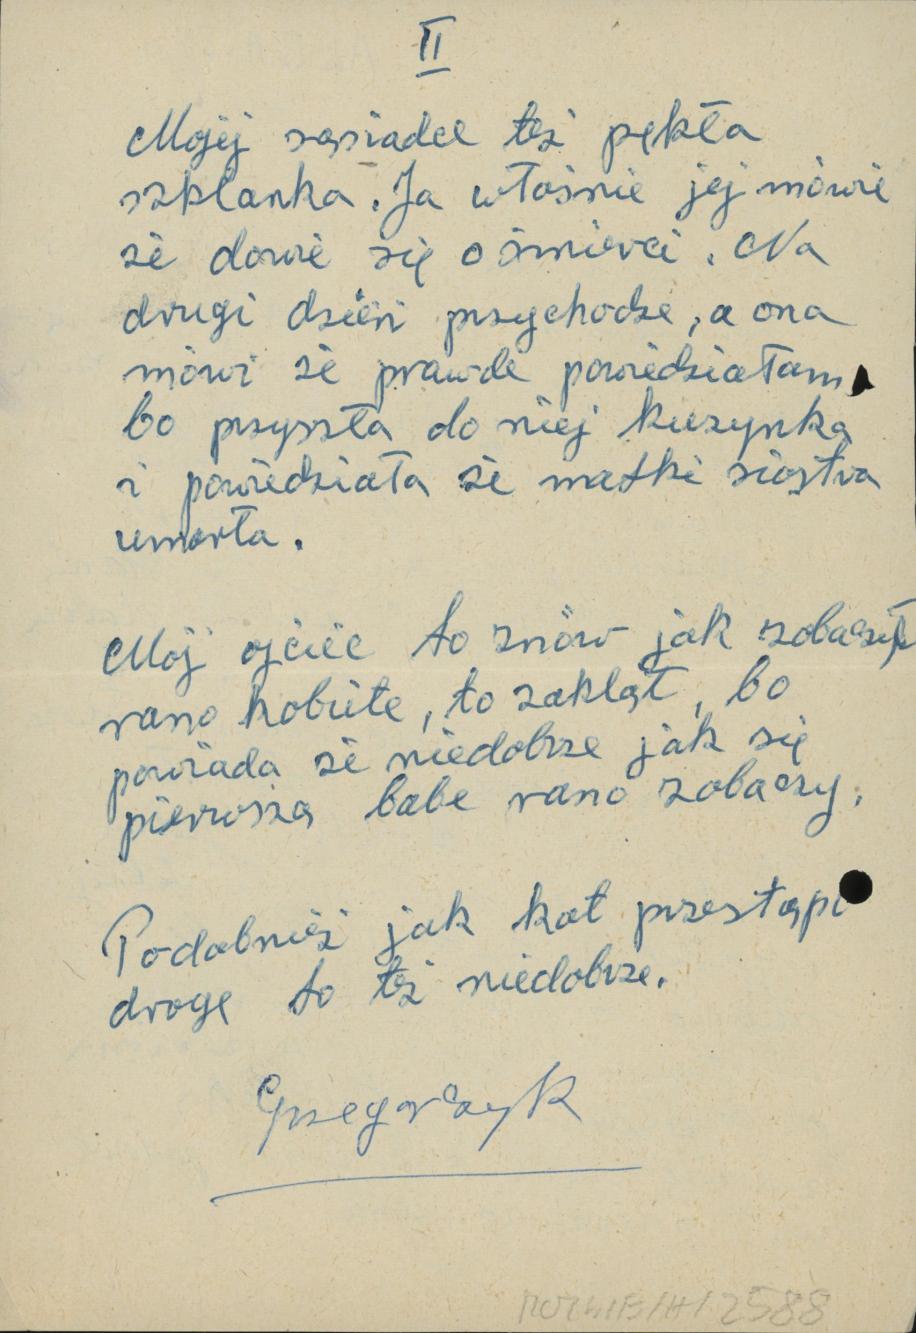 II
Mojej sąsiadce też pękła
szklanka. Ja właśnie jej mówie
że dowie się o śmierci. Na
drugi dzień przychodze, a ona
mówi że prawde powiedziałam,
bo przyszła do niej kuzynka
i powiedziała że matki siostra
umarła.
Mój ojciec to znów jak zobaczył
rano kobiete, to zakląt, bo
powiada że niedobrze jak się
pierwszą babe rano zobaczy.
Podobnież jak kot przestąpi
drogę to też niedobrze.
Grzegorczyk
2588